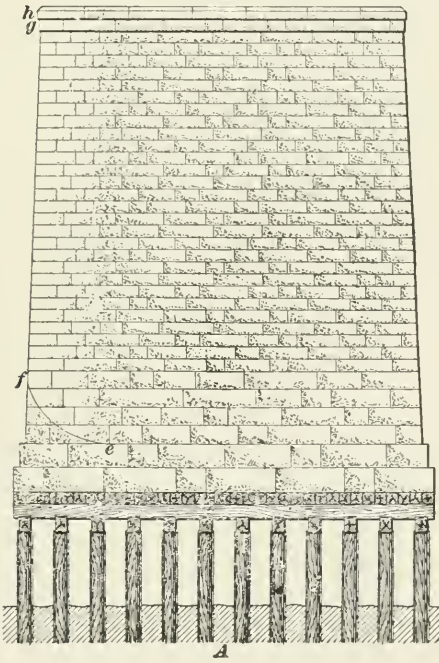 h
g
f
e
A